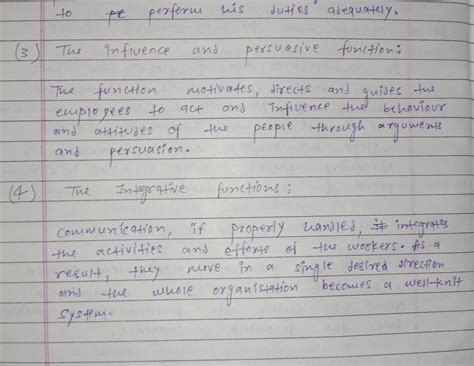 to perform his duties adequately.
(3) The influence and persuasive function:
The function motivates, directs and guides the
employees to act and influence the behaviour
and attitudes of the people through arguments
and persuasion.
(4) The Integrative functions:
communication, if properly handled, it integrates
the activities and efforts of the workers. As a
result, they move in a single desired direction
and the whole organistation becomes a well-knit
system.